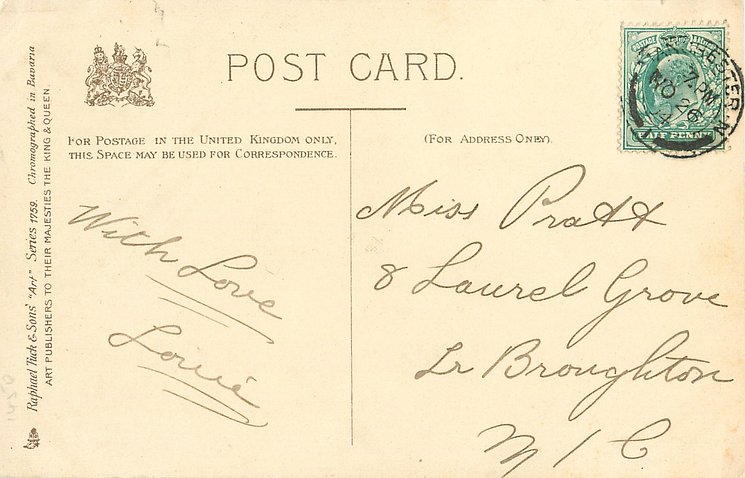 POST CARD.
FOR POSTAGE IN THE UNITED KINGDOM ONLY,
THIS SPACE MAY BE USED FOR CORRESPONDENCE.
(FOR ADDRESS ONLY).
With Love
Louie
Miss Pratt
8 Laurel Grove
Lr Broughton
M/C
Raphael Tuck & Sons' "Art" Series 1759. Chromographed in Bavaria
ART PUBLISHERS TO THEIR MAJESTIES THE KING & QUEEN.
POSTAGE
HALF PENNY
7. PM
NO 26
4